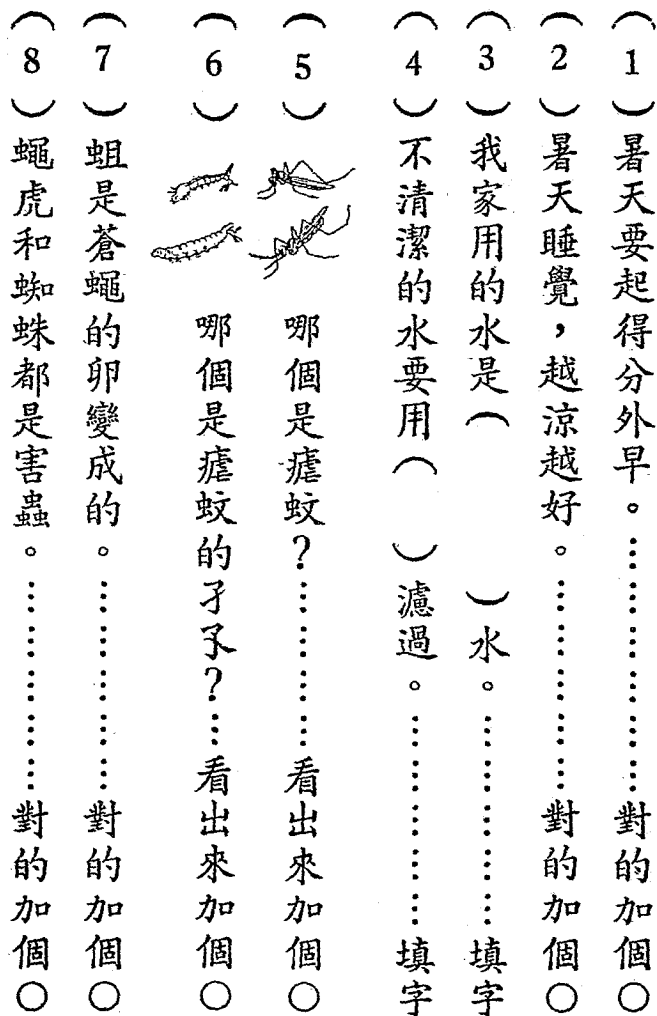 （1）暑天要起得分外早。……………對的加個○
（2）暑天睡覺，越涼越好。……………對的加個○
（3）我家用的水是（　　）水。……………填字
（4）不清潔的水要用（　）濾過。……………填字
（5）哪個是瘧蚊？……………看出來加個○
（6）哪個是瘧蚊的孑孓？…看出來加個○
（7）蛆是蒼蠅的卵變成的。……………對的加個○
（8）蠅虎和蜘蛛都是害蟲。……………對的加個○